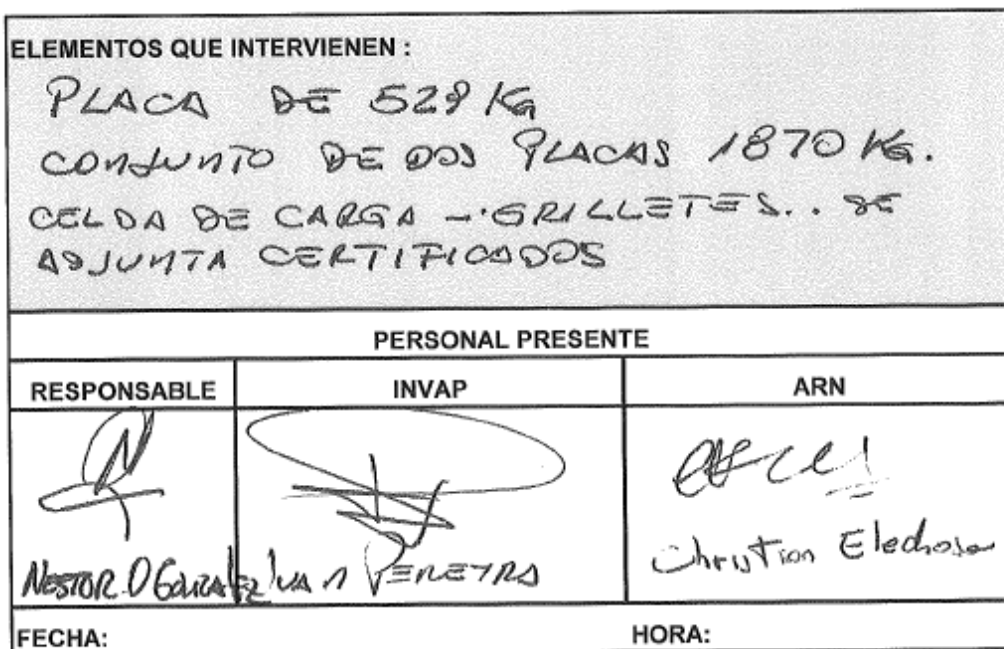 ELEMENTOS QUE INTERVIENEN :
PLACA DE 529 KG
CONJUNTO DE DOS PLACAS 1870 KG.
CELDA DE CARGA - GRILLETES.. SE
ADJUNTA CERTIFICADOS
PERSONAL PRESENTE
RESPONSABLE INVAP ARN
NESTOR O GONZALEZ JUAN PEREYRA Christian Elechosa
FECHA: HORA: